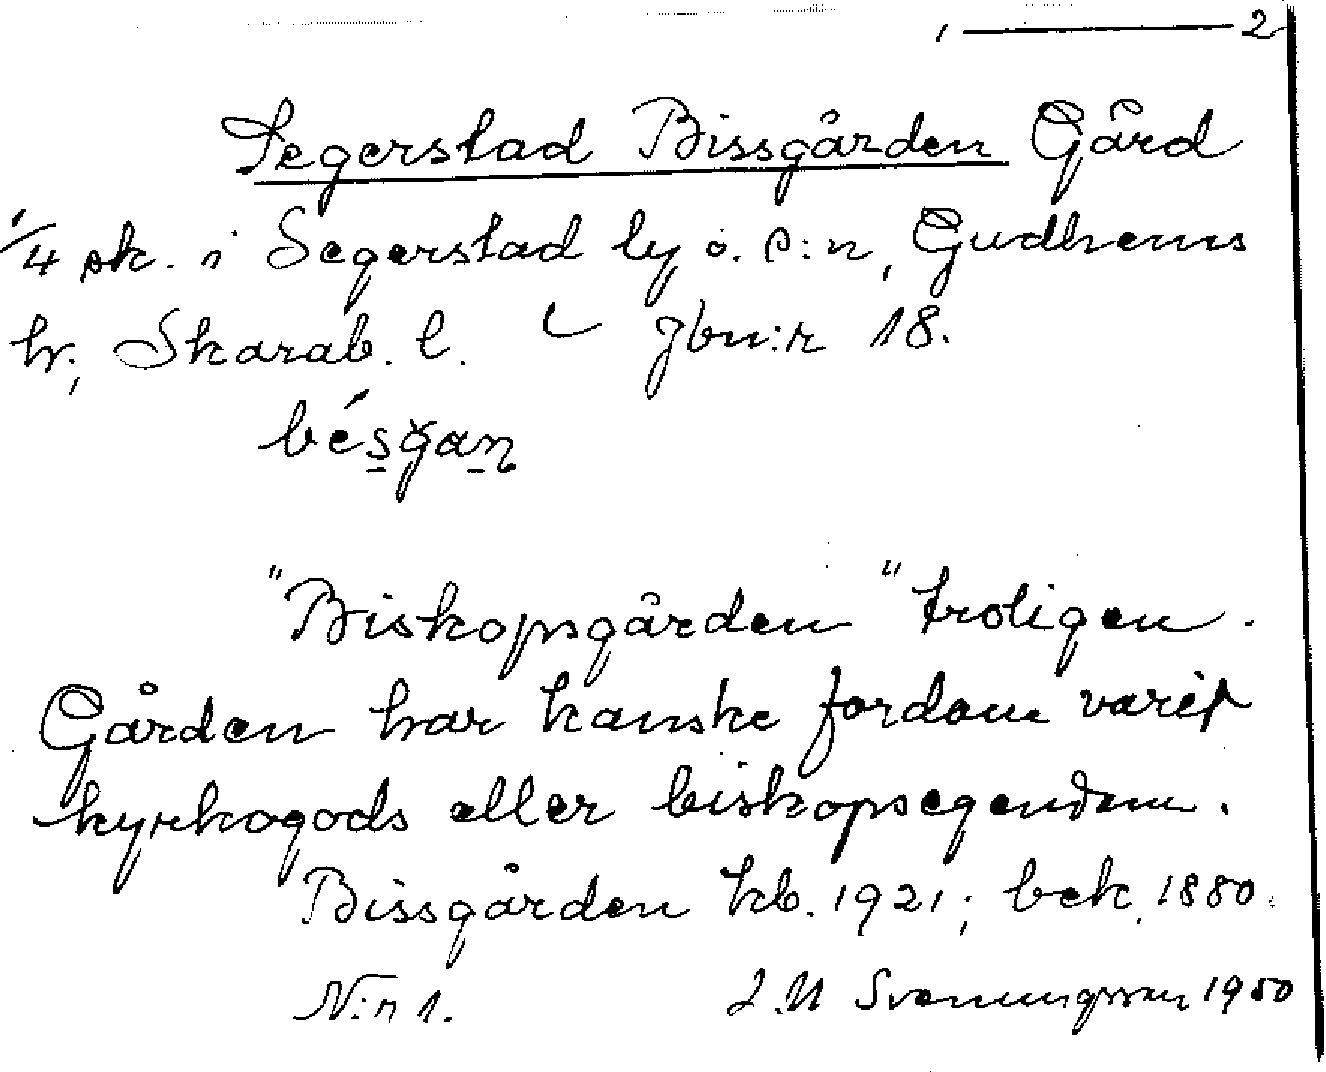 1 ——— 2
Segerstad Bissgården Gård
1/4 sk. i Segerstad by o. s:n, Gudhems
hr, Skarab. l. jbn:r 18.
bésgan
"Biskopsgården" troligen.
Gården har kanske fordom varit
kyrkogods eller biskopsegendom.
Bissgården kb. 1921; bek. 1880.
N:r 1. J.M Svenungsson 1950